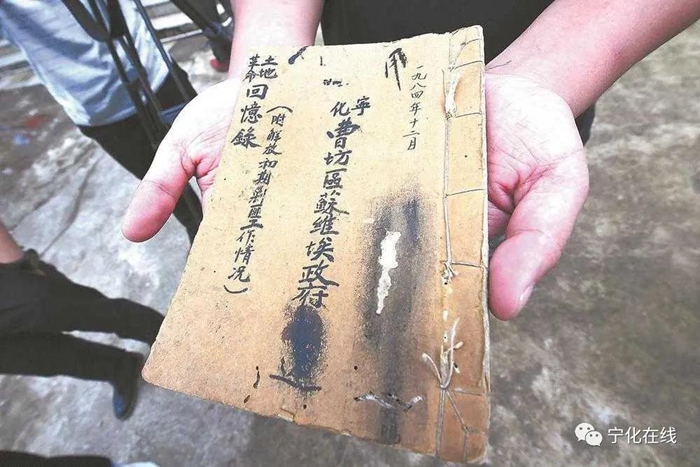 一九八四年十二月
宁化
曹坊區蘇维埃政府
土地
革命
回憶錄
（附解放初期剿匪工作情况）
宁化在线